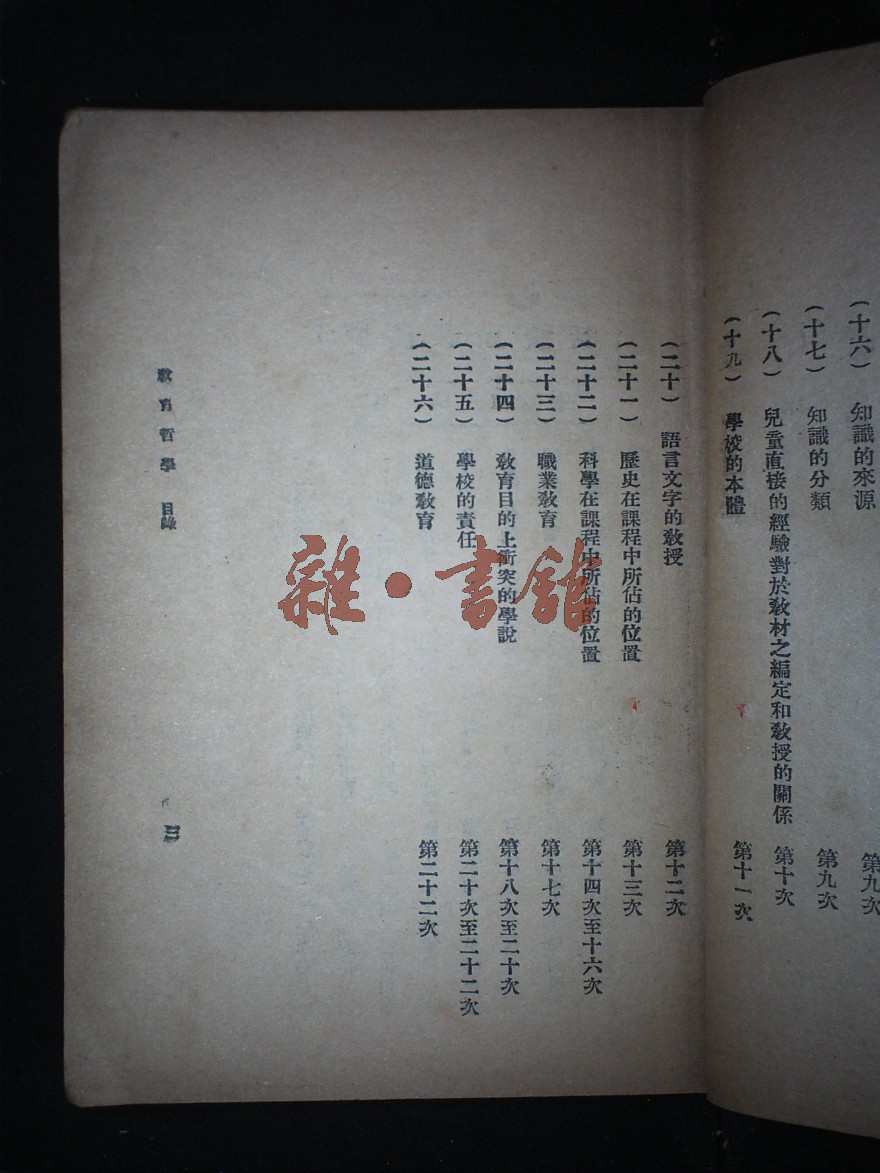 (十六) 知識的來源 第九次
(十七) 知識的分類 第九次
(十八) 兒童直接的經驗對於敎材之編定和敎授的關係 第十次
(十九) 學校的本體 第十一次
(二十) 語言文字的敎授 第十二次
(二十一) 歷史在課程中所佔的位置 第十三次
(二十二) 科學在課程中所佔的位置 第十四次至十六次
(二十三) 職業敎育 第十七次
(二十四) 敎育目的上衝突的學說 第十八次至二十次
(二十五) 學校的責任 第二十次至二十二次
(二十六) 道德敎育 第二十二次
敎育哲學 目錄
雜·書館